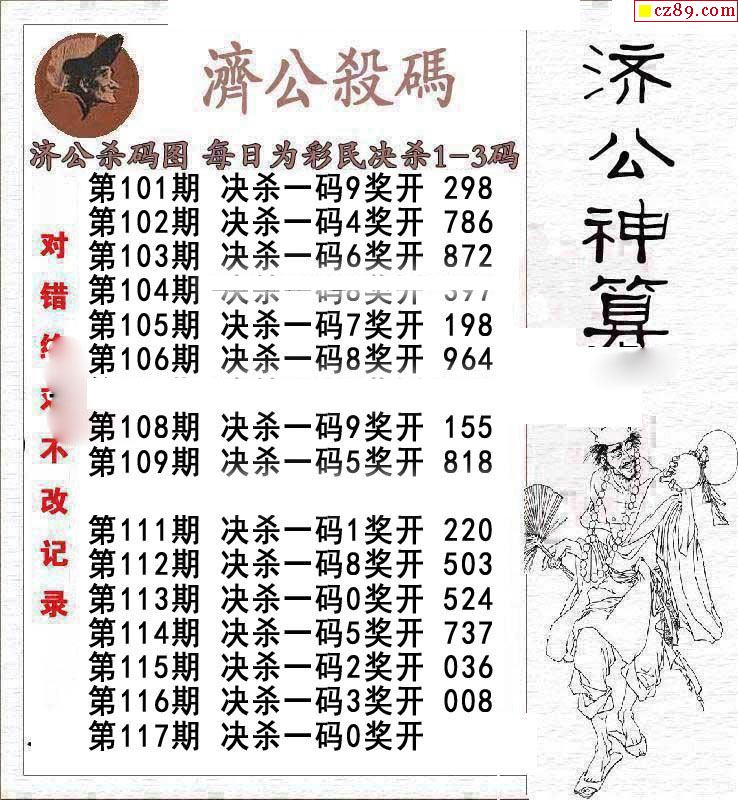 cz89.com
濟公殺碼
济公杀码图 每日为彩民决杀1-3码
第101期 决杀一码9奖开 298
第102期 决杀一码4奖开 786
第103期 决杀一码6奖开 872
第104期
第105期 决杀一码7奖开 198
第106期 决杀一码8奖开 964
第108期 决杀一码9奖开 155
第109期 决杀一码5奖开 818
第111期 决杀一码1奖开 220
第112期 决杀一码8奖开 503
第113期 决杀一码0奖开 524
第114期 决杀一码5奖开 737
第115期 决杀一码2奖开 036
第116期 决杀一码3奖开 008
第117期 决杀一码0奖开
对错
不改记录
济公神算